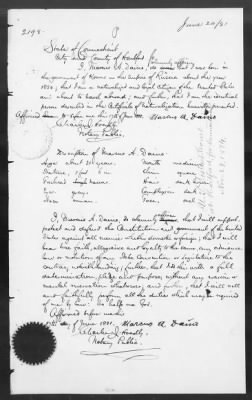 June 20/81
2195
State of Connecticut
City and County of Hartford
I, Marcus A. Davis, do that I was born in
the government of Kovno in the Empire of Russia about the year
1850; that I am a naturalized and legal citizen of the United States
and about to travel abroad; and further, that I am the identical
person described in the Certificate of Naturalization herewith presented.
Affirmed to before me this Marcus A. Davis
Notary Public.
Description of Marcus A. Davis:
Age about years. Mouth medium
Stature, 5 feet in Chin square
Forehead Hair dark brown
Eyes gray Complexion dark
Nose Face oval
I, Marcus A. Davis, do solemnly that I will support,
protect and defend the Constitution and government of the United
States against all enemies, whether domestic or foreign; that I will
bear true faith, allegiance and loyalty to the same, any ordinance,
law or resolution of any State Convention or legislature to the
contrary notwithstanding; further, that I do this with a full
determination, pledge and purpose, without any mental
reservation or evasion whatsoever; and further, that I will well
and faithfully perform all the duties which may be required
of me by law: So help me God.
Affirmed before me this
day of June 1881. Marcus A. Davis
Notary Public.